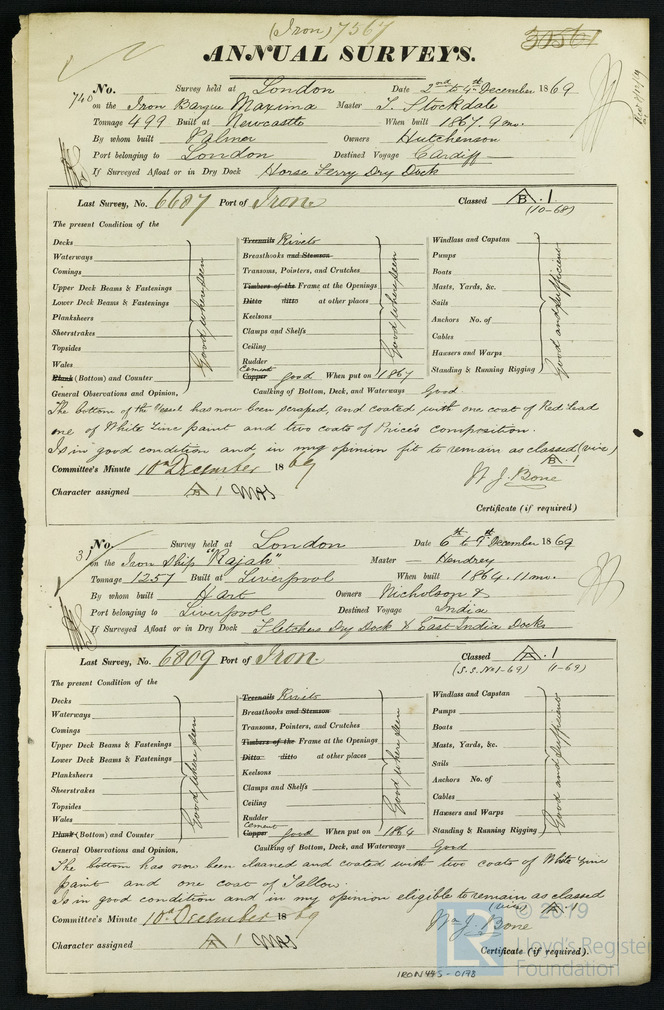 (Iron) 7567
30561
ANNUAL SURVEYS.
No. 740 Survey held at London Date 2nd to 4th December 1869
on the Iron Barque Maxima Master T. Stockdale
Tonnage 499 Built at Newcastle When built 1867. 9 mo.
By whom built Palmer Owners Hutchenson
Port belonging to London Destined Voyage Cardiff
If Surveyed Afloat or in Dry Dock Horse Ferry Dry Dock
Last Survey, No. 6687 Port of Iron Classed B. 1
(10-68)
The present Condition of the
Decks Treenails Rivets Windlass and Capstan
Waterways Breasthooks and Stemson Pumps
Comings Transoms, Pointers, and Crutches Boats
Upper Deck Beams & Fastenings Timbers of the Frame at the Openings Masts, Yards, &c.
Lower Deck Beams & Fastenings Ditto ditto at other places Sails
Planksheers Keelsons Anchors No. of
Sheerstrakes Clamps and Shelfs Cables
Topsides Ceiling Hawsers and Warps
Wales Rudder Standing & Running Rigging
Good where seen Good where seen Good and sufficient
Plank (Bottom) and Counter Copper Cement good When put on 1867
General Observations and Opinion, Caulking of Bottom, Deck, and Waterways Good
The bottom of the Vessel has now been scraped, and coated with one coat of Red Lead
one of White Zinc paint and two coats of Price's composition.
Is in good condition and in my opinion fit to remain as classed (vize)
B. 1
Committee's Minute 10th December 1869
W. J. Bone
Character assigned B 1
Certificate (if required)
No. 31 Survey held at London Date 6th to 9th December 1869
on the Iron Ship "Rajah" Master Hendrey
Tonnage 1257 Built at Liverpool When built 1864. 11 mo.
By whom built Hart Owners Nicholson &
Port belonging to Liverpool Destined Voyage India
If Surveyed Afloat or in Dry Dock Fletchers Dry Dock & East India Docks
Last Survey, No. 6809 Port of Iron. Classed A. 1
(S.S. No 1-69) (1-69)
The present Condition of the
Decks Treenails Rivets Windlass and Capstan
Waterways Breasthooks and Stemson Pumps
Comings Transoms, Pointers, and Crutches Boats
Upper Deck Beams & Fastenings Timbers of the Frame at the Openings Masts, Yards, &c.
Lower Deck Beams & Fastenings Ditto ditto at other places Sails
Planksheers Keelsons Anchors No. of
Sheerstrakes Clamps and Shelfs Cables
Topsides Ceiling Hawsers and Warps
Wales Rudder Standing & Running Rigging
Good where seen Good where seen Good and sufficient
Plank (Bottom) and Counter Copper Cement good When put on 1864
General Observations and Opinion, Caulking of Bottom, Deck, and Waterways Good
The bottom has now been cleaned and coated with two coats of White Zinc
paint and one coat of Tallow.
Is in good condition and in my opinion eligible to remain as classed
(vize) A. 1
Committee's Minute 10th December 1869
Wm J. Bone
Character assigned A 1
Certificate (if required).
IRON 445-0198
LR © 2019
Lloyd's Register
Foundation